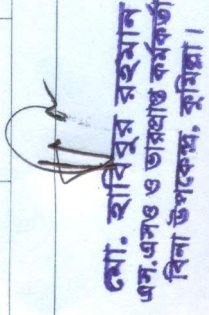 মো. হাবিবুর রহমান
এস.এসও ও ভারপ্রাপ্ত কর্মকর্তা
বিনা উপকেন্দ্র, কুমিল্লা।